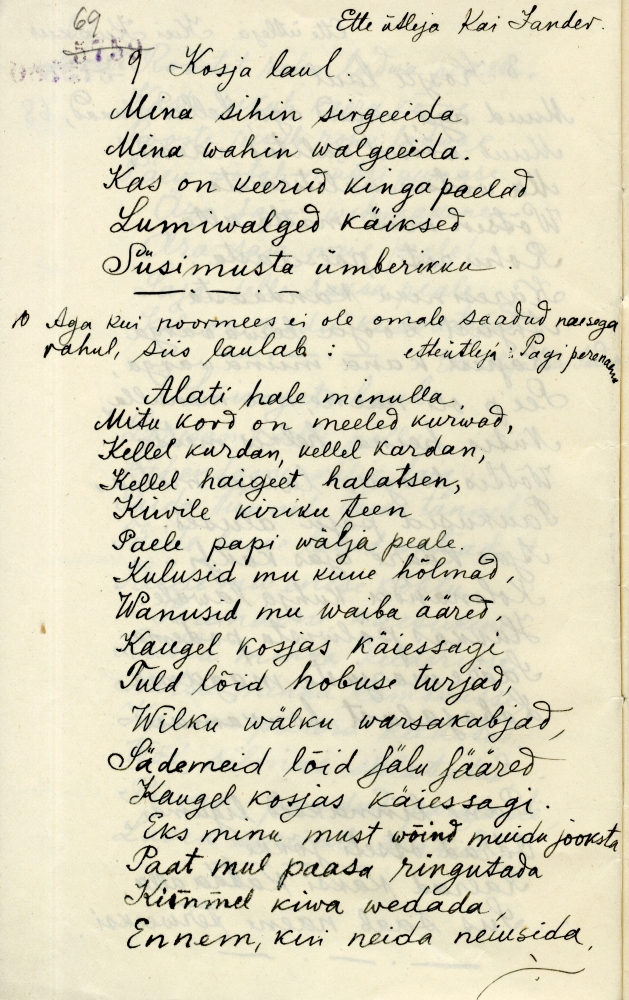 69
5759
Ette ütleja Kai Sander.
9 Kosja laul.
Mina sihin sirgeeida
Mina wahin walgeeida.
Kas on keerud kingapaelad
Lumiwalged käiksed
Süsimusta ümberikku.
10 Aga kui noormees ei ole omale saadud naesega
rahul, siis laulab: etteütleja: Pagi perenaine
Alati hale minulla,
Mitu kord on meeled kurwad,
Kellel kurdan, kellel kardan,
Kellel haigeet halatsen,
Kiwile kiriku teen
Paele papi wälja peale.
Kulusid mu kuue hõlmad,
Wanusid mu waiba ääred,
Kaugel kosjas käiessagi
Tuld lõid hobuse turjad,
Wilku wälku warsakabjad,
Sädemeid lõid sälu sääred
Kaugel kosjas käiessagi.
Eks minu must wõind muidu joosta
Paat mul paasa ringutada
Kimmel kiwa wedada,
Ennem, kui neida neiusida.